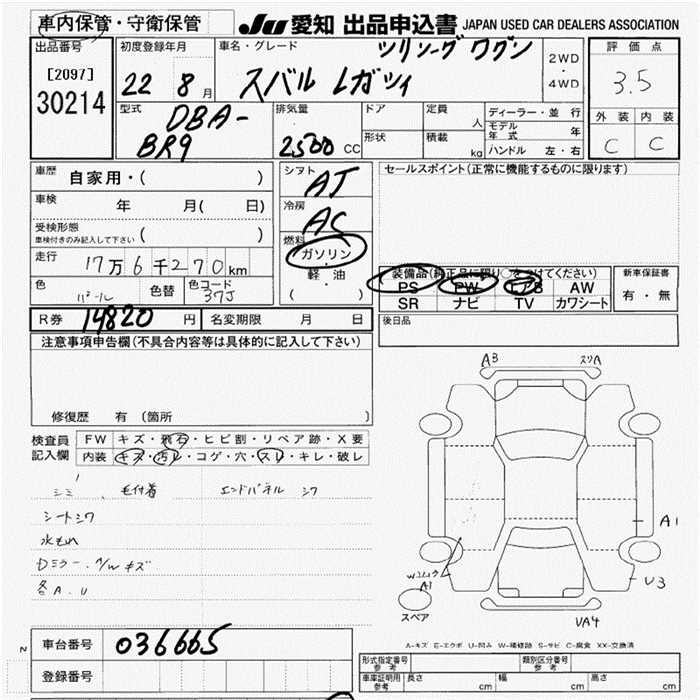 車内保管・守衛保管
JU 愛知 出品申込書 JAPAN USED CAR DEALERS ASSOCIATION
出品番号
[2097]
30214
初度登録年月
22 8月
車名・グレード
ツーリングワゴン
スバル レガシィ
2WD
・
4WD
評価点
3.5
外装 内装
C C
型式
DBA-
BR9
排気量
2500 CC
ドア
形状
定員 人
積載 kg
ディーラー・並行
モデル年式 年
ハンドル 左・右
車歴 自家用・( )
車検 年 月( 日)
受検形態
車検付きのみ記入して下さい ( )
走行 17万6千270km
色 パール 色替 色コード 37J
シフト
AT
冷房
AC
燃料
ガソリン
・
軽油
( )
セールスポイント(正常に機能するものに限ります)
装備品(純正品に限り○をつけてください)
PS PW エアB AW
SR ナビ TV カワシート
新車保証書
有・無
R券 14820円 名変期限 月 日
後日品
注意事項申告欄(不具合内容等は具体的に記入して下さい)
修復歴 有 (箇所
検査員
記入欄
FW キズ・飛石・ヒビ割・リペア跡・X要
内装 キズ・汚レ・コゲ・穴・スレ・キレ・破レ
シミ 毛付着 エンドパネル シワ
シートシワ
水もれ
Dミラー・A/Wキズ
各A.U
A3
スリA
A1
U3
A1
UA4
スペア
A-キズ E-エクボ U-凹み W-補修跡 S-サビ C-腐食 XX-交換済
車台番号 036665
登録番号
形式指定番号
参考
類別区分番号
参考
車庫証明用
参考
長さ cm 幅 cm 高さ cm
2